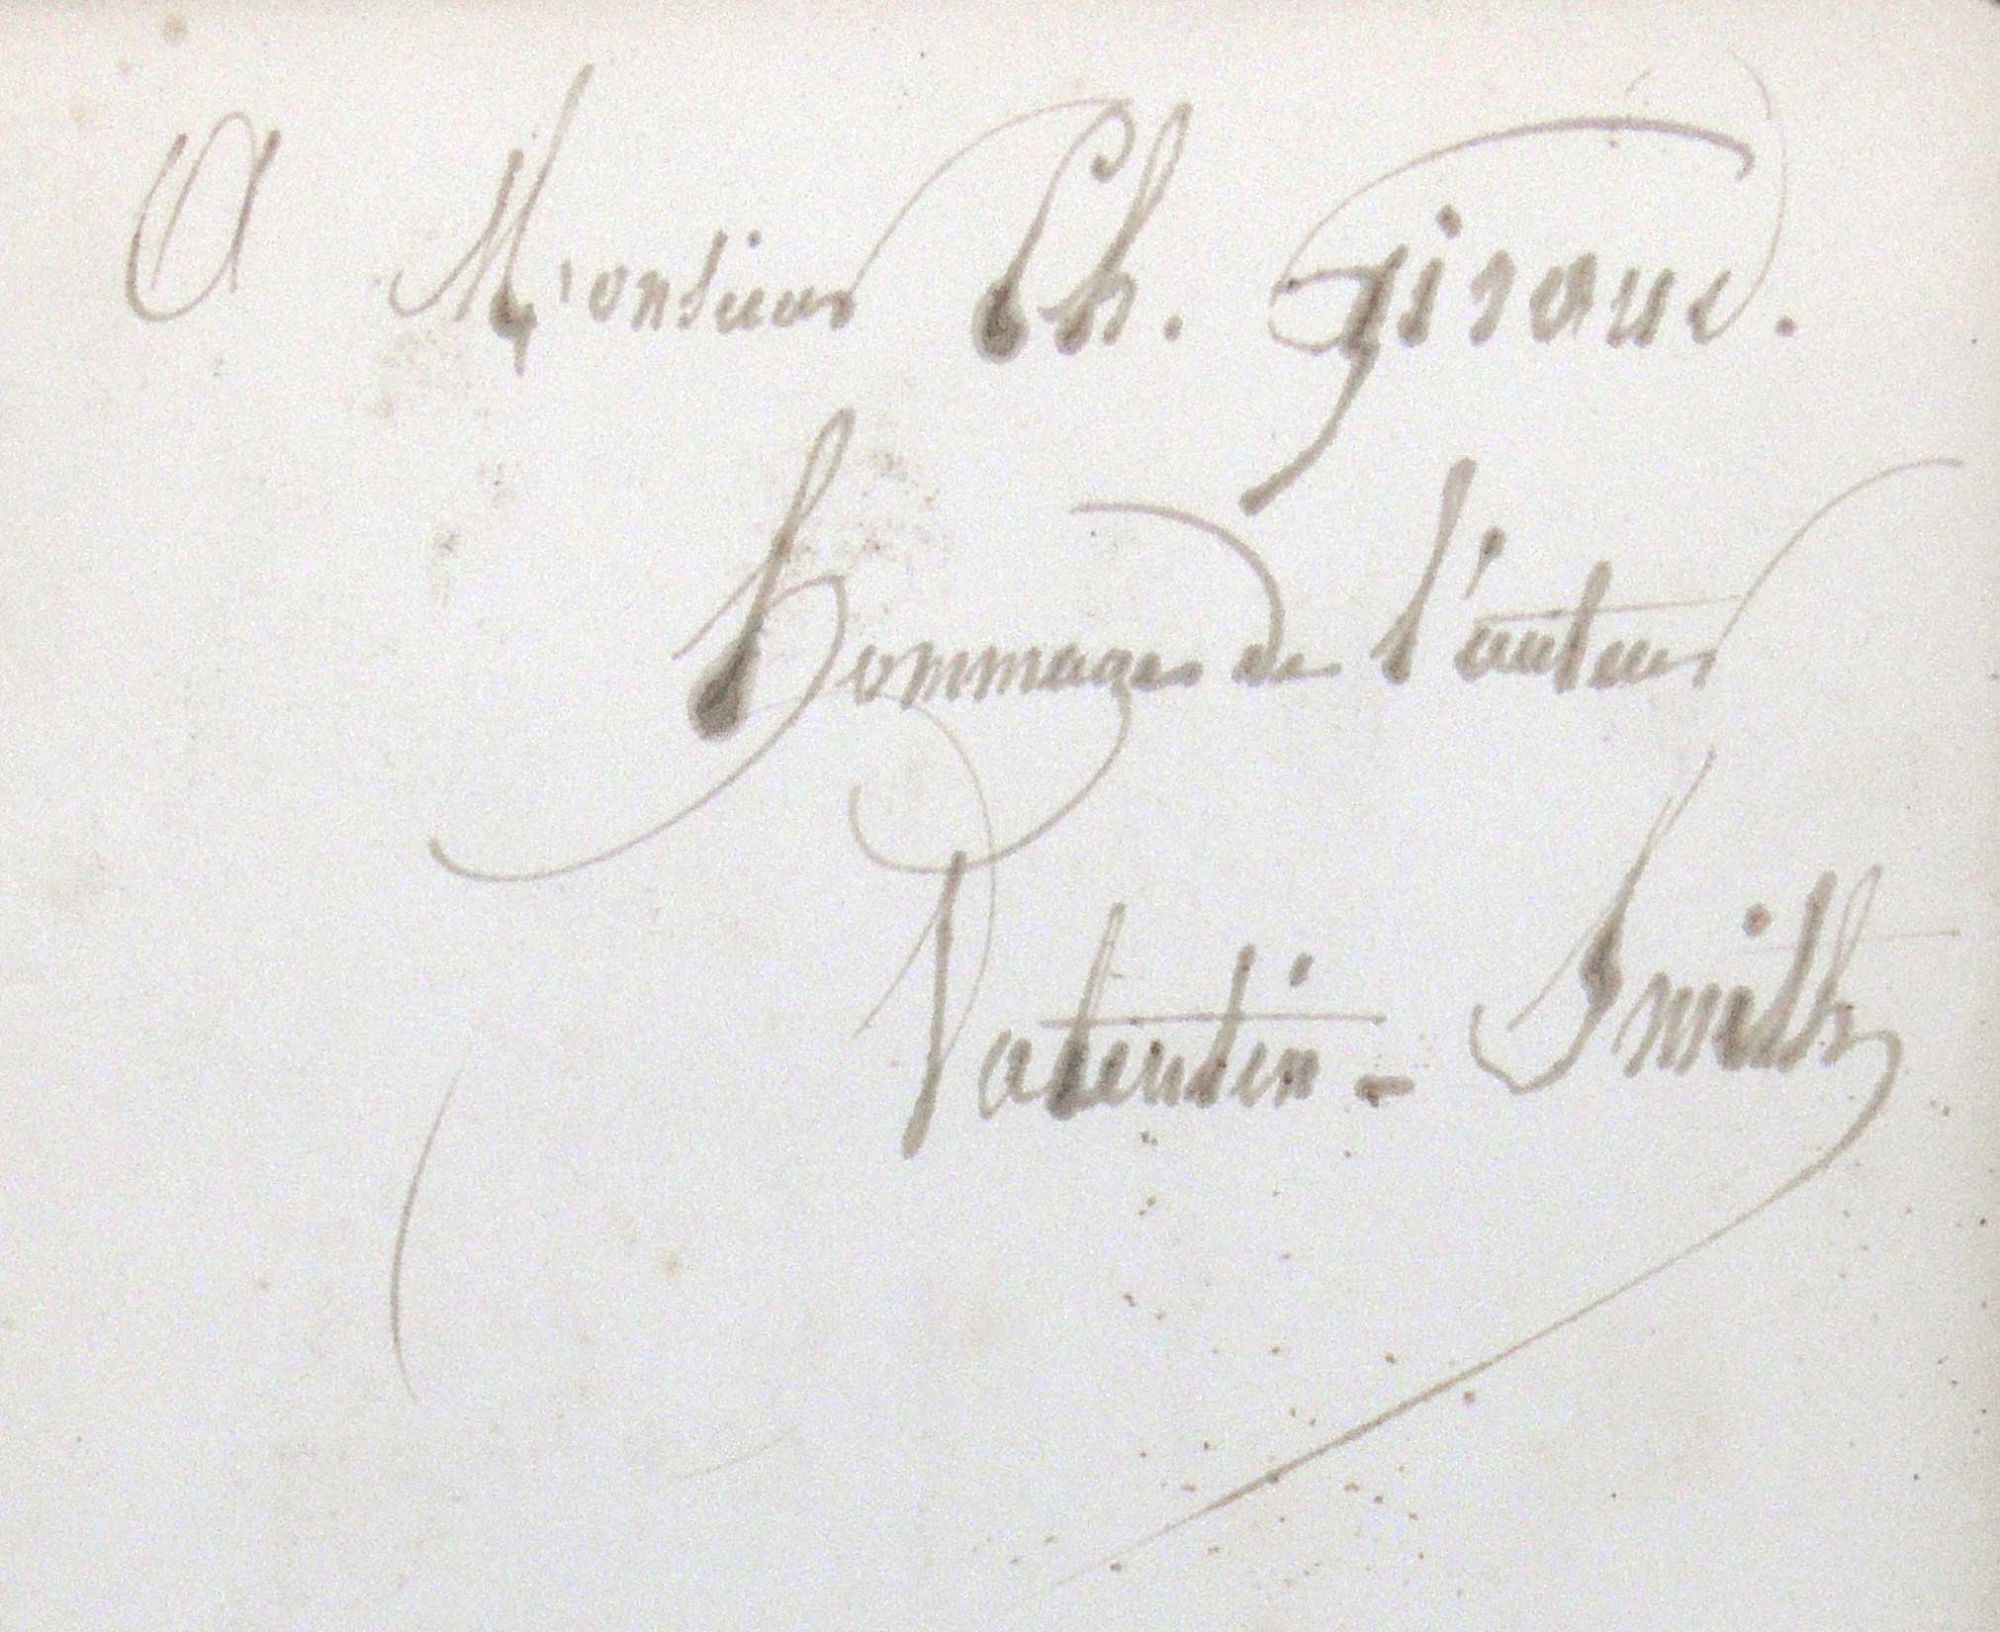 A Monsieur Ch. Giraud.
hommage de l'auteur
Valentin-Smith